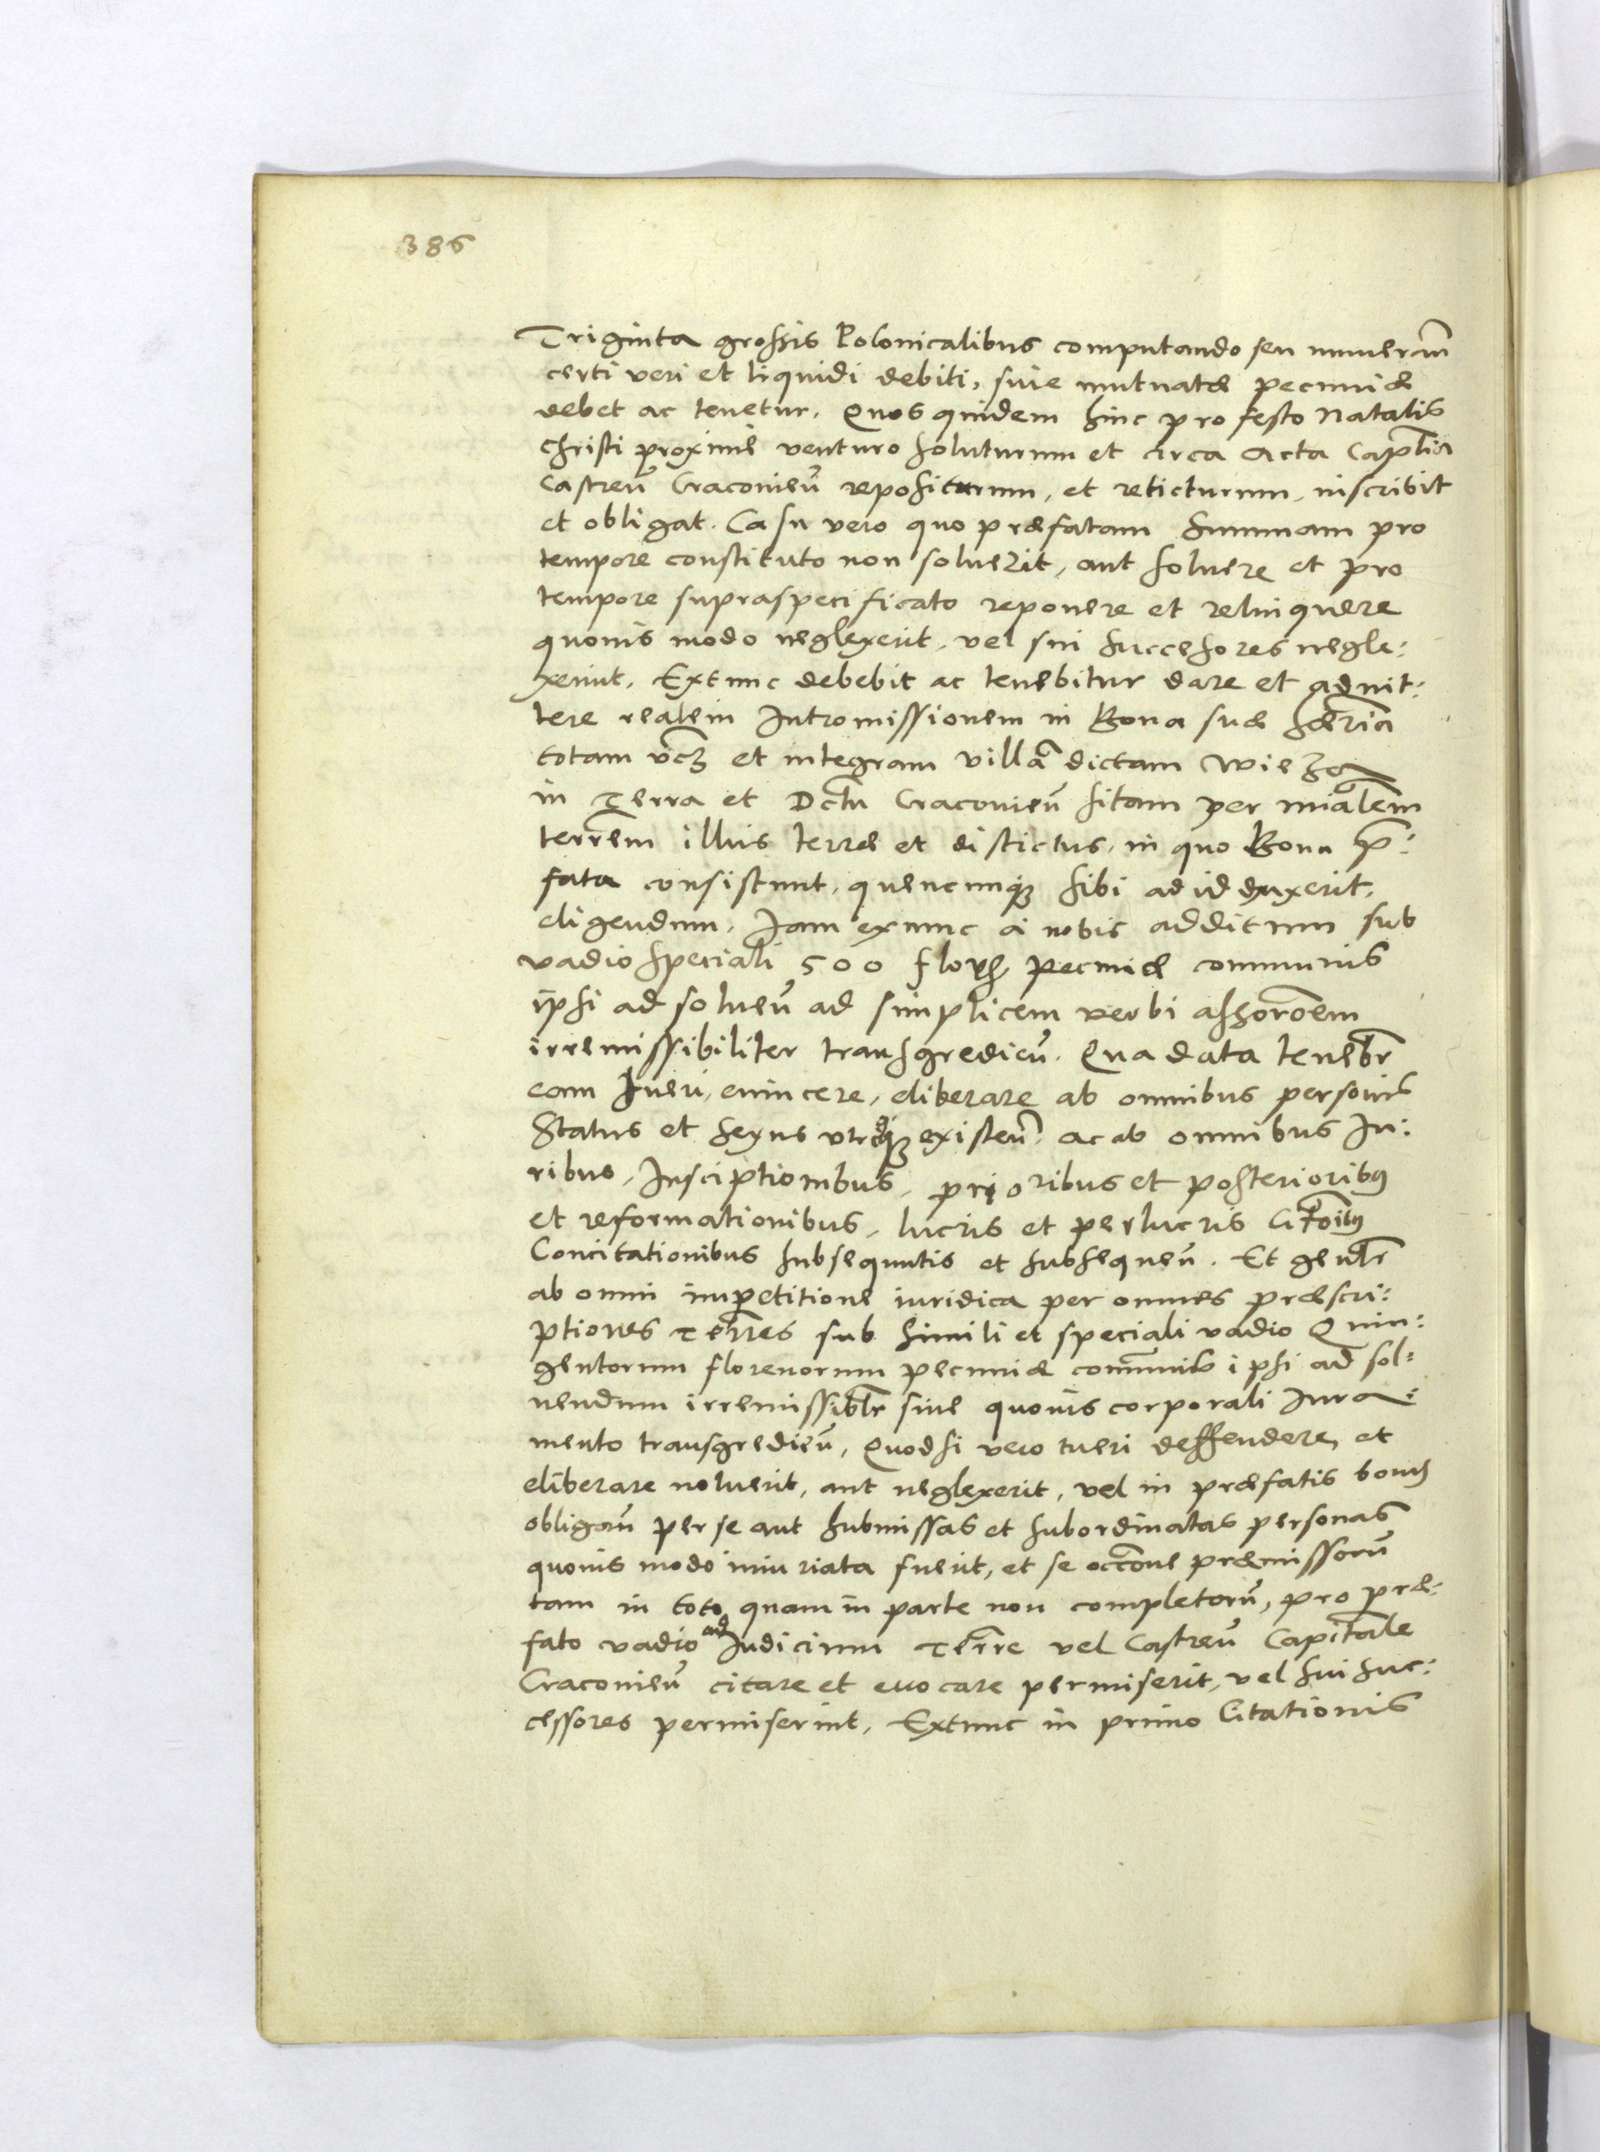 386
Triginta grossis Polonicalibus computando seu numeran̄
certi veri et liquidi debiti, sive mutuatæ pecuniæ
debet ac tenetur. Quos quidem hinc pro festo Natalis
Christi proxime venturo soluturum et circa Acta Captlia
Castreñ Cracovieñ repositurum, et relicturum, inscribit
et obligat. Casu vero quo præfatam summam pro
tempore constituto non soluerit, aut soluere et pro
tempore supraspecificato reponere et relinquere
quovis modo neglexerit, vel sui successores negle:
xerint. Extunc debebit ac tenebitur dare et admit:
tere realem Intromissionem in Bona suæ hæria
totam vcz et integram villā dictam Wieza
in Terra et Dctu Cracovieñ sitam per mialem
terrem illius terræ et districtus, in quo Bona p̄:
fata consistunt, quencunq; sibi ad id duxerit
eligendum, Iam exnunc a nobis additum sub
vadio speciali 500 flor. pecuniæ communis
ipsi ad solueñ ad simplicem verbi assōrōem
irremissibiliter transgredieñ. Qua data tenebr
eam tueri, evincere, eliberare ab omnibus personis
Status et sexus utriq; existeñ. ac ab omnibus Iu:
ribus, Insciptionibus, prioribus et posterioribus
et reformationibus, lucris et perlucris Citōibus
Concitationibus subsequutis et subsequeñ. Et genlr
ab omni impetitione iuridica per omnes præscri:
ptiones Terres sub simili et speciali vadio Quin:
gentorum florenorum pecuniæ com̄unis ipsi ad sol:
uendum irremissiblr sine quovis corporali Iura:
mento transgredieñ, Quod si vero tueri deffendere et
eliberare noluerit, aut neglexerit, vel in præfatis bonis
obligañ per se aut submissas et subordinatas personas
quovis modo iniuriata fuerit, et se occōne præmissorū
tam in toto quam in parte non completorū, pro præ:
fato vadio ad Iudicium Terre vel Castreñ Capitale
Cracovieñ citare et evocare permiserit, vel sui suc:
cessores permiserint, Extunc in primo Citationis